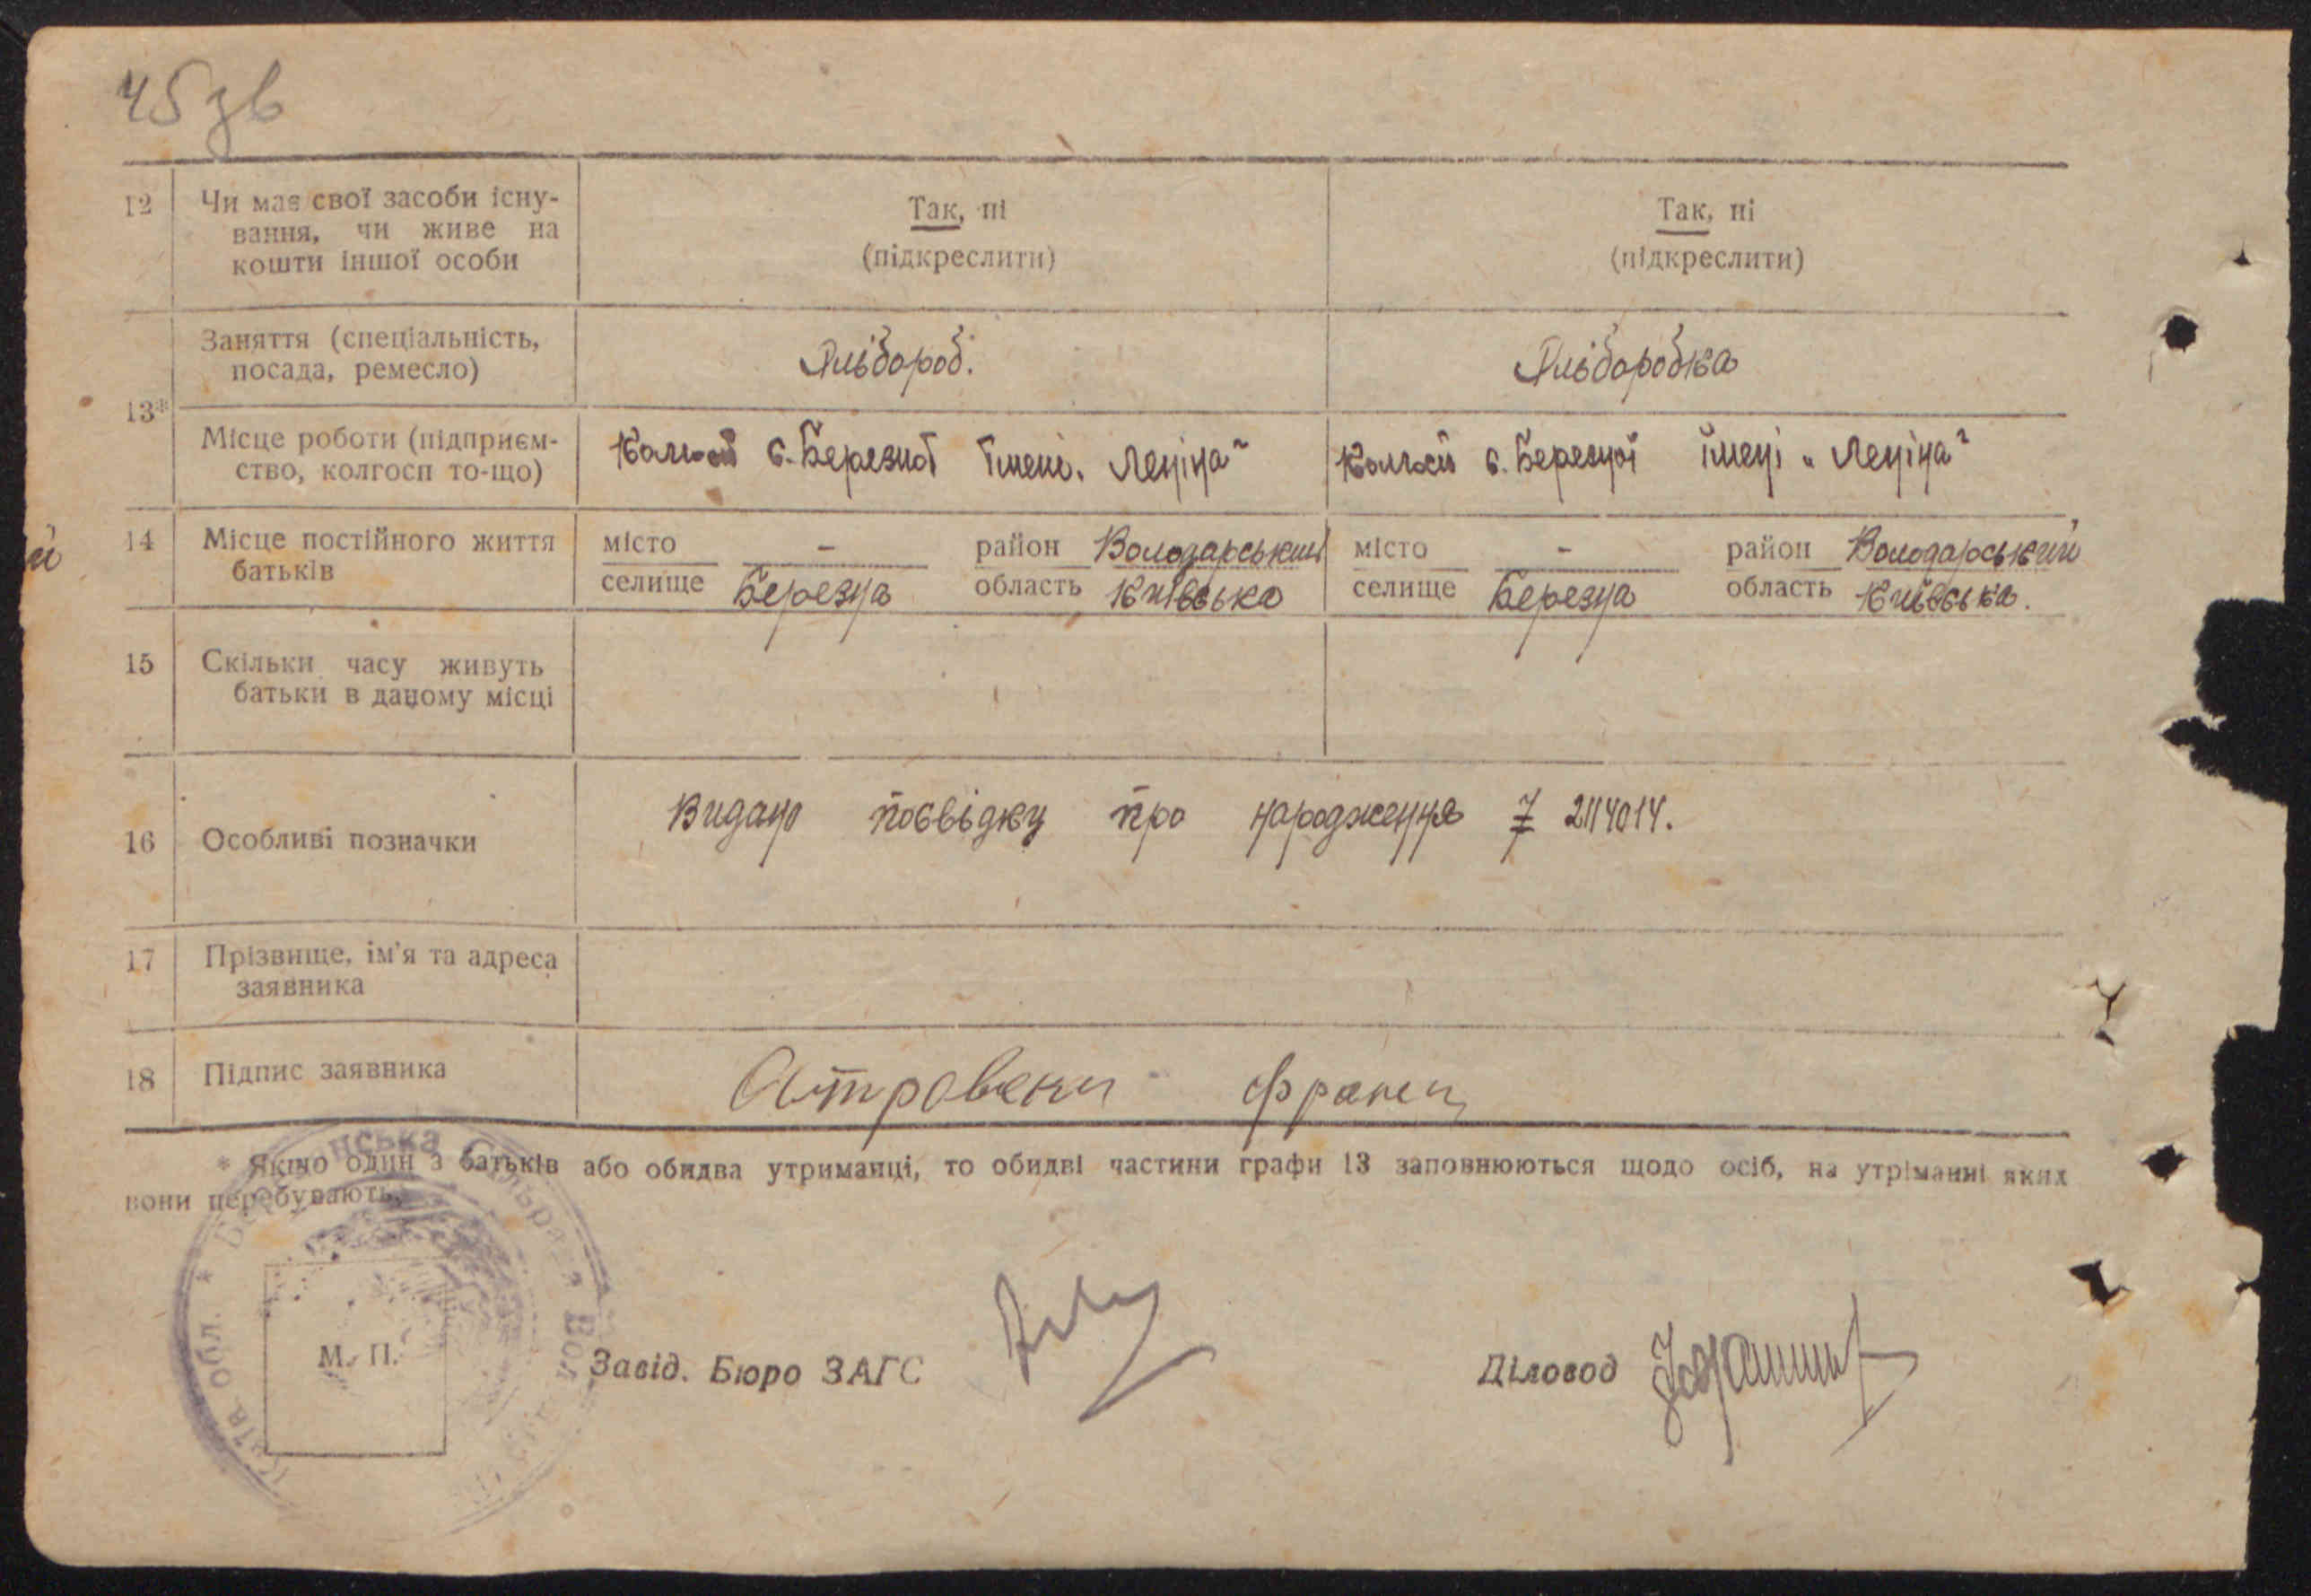 45 зв
12 Чи має свої засоби існу- Так, ні Так, ні
вання, чи живе на
кошти іншої особи (підкреслити) (підкреслити)
Заняття (спеціальність, Хлібороб. Хліборобка
посада, ремесло)
13*
Місце роботи (підприєм- Колгосп с. Березної імені „Леніна" Колгосп с. Березної імені „Леніна"
ство, колгосп то-що)
14 Місце постійного життя місто - район Володарський місто - район Володарський
батьків селище Березна область Київська селище Березна область Київська.
15 Скільки часу живуть
батьки в даному місці
Видано посвідку про народження № 2114014.
16 Особливі позначки
17 Прізвище, ім'я та адреса
заявника
18 Підпис заявника
* Якщо один з батьків або обидва утриманці, то обидві частини графи 13 заповнюються щодо осіб, на утріманні яких
вони перебувають.
М. П.
Завід. Бюро ЗАГС Діловод